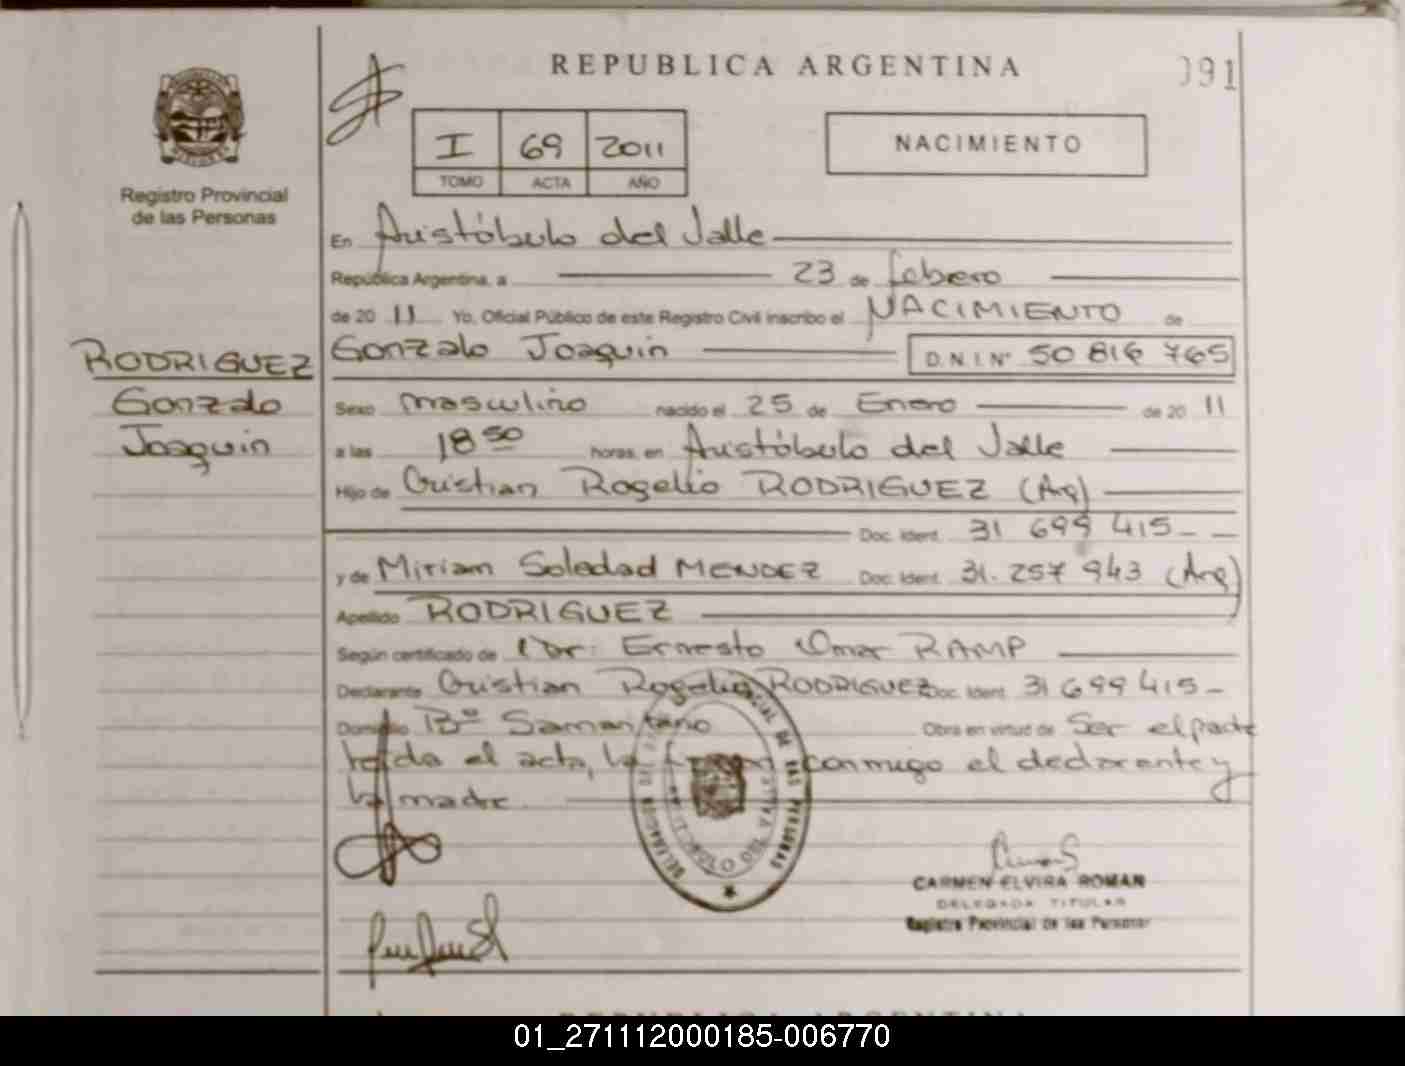 REPUBLICA ARGENTINA
091
I 69 2011
TOMO ACTA AÑO
NACIMIENTO
Registro Provincial
de las Personas
En Aristóbulo del Valle
República Argentina, a 23 de febrero
de 2011 Yo, Oficial Público de este Registro Civil inscribo el NACIMIENTO de
Gonzalo Joaquin D.N.I.Nº 50 816 765
RODRIGUEZ
Gonzalo
Joaquin
Sexo masculino nacido el 25 de Enero de 2011
a las 18 50 horas, en Aristóbulo del Valle
Hijo de Cristian Rogelio RODRIGUEZ (Arg)
Doc. Ident. 31 699 415
y de Miriam Soledad MENDEZ Doc. Ident. 31.257 943 (Arg)
Apellido RODRIGUEZ
Según certificado de Dr: Ernesto Omar RAMP
Declarante Cristian Rogelio RODRIGUEZ Doc. Ident. 31 699 415
Domicilio Bº Samaritano Obra en virtud de Ser el padre
leída el acta, la conmigo el declarante y
la madre.
CARMEN ELVIRA ROMAN
DELEGADA TITULAR
Registro Provincial de las Personas
REPUBLICA ARGENTINA
01_271112000185-006770